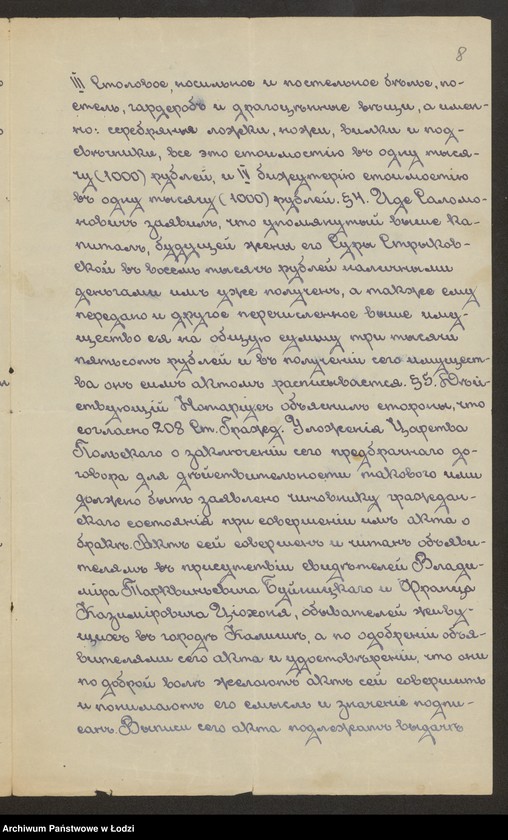 8
III Столовое, носильное и постельное бѣлье, по-
стель, гардеробъ и драгоцѣнные вещи, а имен-
но: серебряные ложки, ножи, вилки и под-
свѣчники, все это стоимостію въ одну тыся-
чу (1000) рублей, и IV бижутерію стоимостію
въ одну тысячу (1000) рублей. §4. Иде Саломо-
новичъ заявилъ, что упомянутый выше ка-
питалъ, будущей жены его Суры Стрыков-
ской въ восемь тысячъ рублей наличными
деньгами имъ уже полученъ, а также ему
передано и другое перечисленное выше иму-
щество ея на общую сумму три тысячи
пятьсотъ рублей и въ полученіи сего имущест-
ва онъ симъ актомъ расписывается. §5. Дѣй-
ствующій Нотаріусъ объяснилъ стороны, что
согласно 208 Ст. Гражд. Уложенія Царства
Польскаго о заключеніи сего предбрачнаго до-
говора для дѣйствительности таковаго ими
должно быть заявлено чиновнику граждан-
скаго состоянія при совершеніи имъ акта о
бракѣ. Актъ сей совершенъ и читанъ объяви-
телямъ въ присутствіи свидѣтелей Влади-
міра Тарквиньевича Буйницкаго и Франца
Казиміровича Ціохоня, обывателей живу-
щихъ въ городѣ Калишѣ, а по одобреніи объя-
вителями сего акта и удостовѣреніи, что они
по доброй волѣ желаютъ актъ сей совершить
и понимаютъ его смыслъ и значеніе подпи-
санъ. Выписи сего акта подлежатъ выдачѣ
Archiwum Państwowe w Łodzi